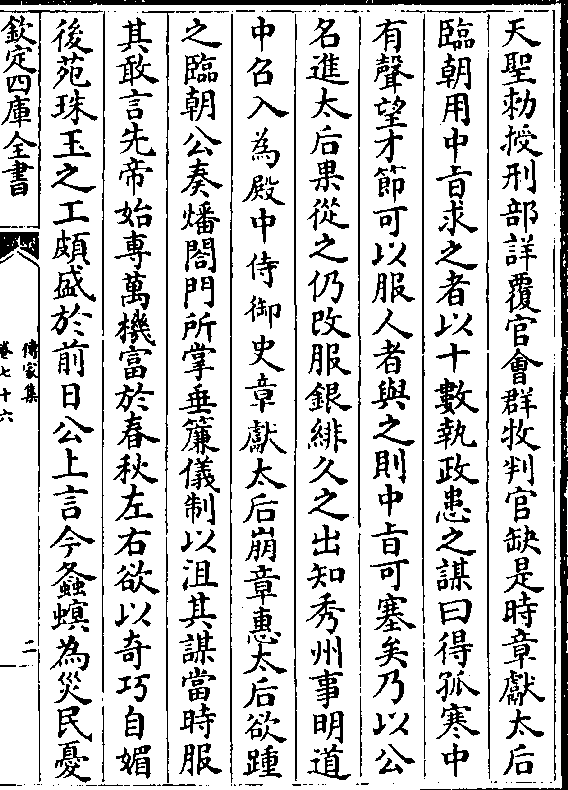 天聖勅授刑部詳覆官會群牧判官缺是時章獻太后
臨朝用中㫖求之者以十數執政患之謀曰得孤寒中
有聲望才節可以服人者與之則中㫖可塞矣乃以公
名進太后果從之仍改服銀緋久之出知秀州事明道
中召入為殿中侍御史章獻太后崩章惠太后欲踵
之臨朝公奏燔閤門所掌垂簾儀制以沮其謀當時服
其敢言先帝始專萬機富於春秋左右欲以奇巧自媚
後苑珠玉之工頗盛於前日公上言今螽螟為災民憂
欽定四庫全書
傳家集
卷七十六
二